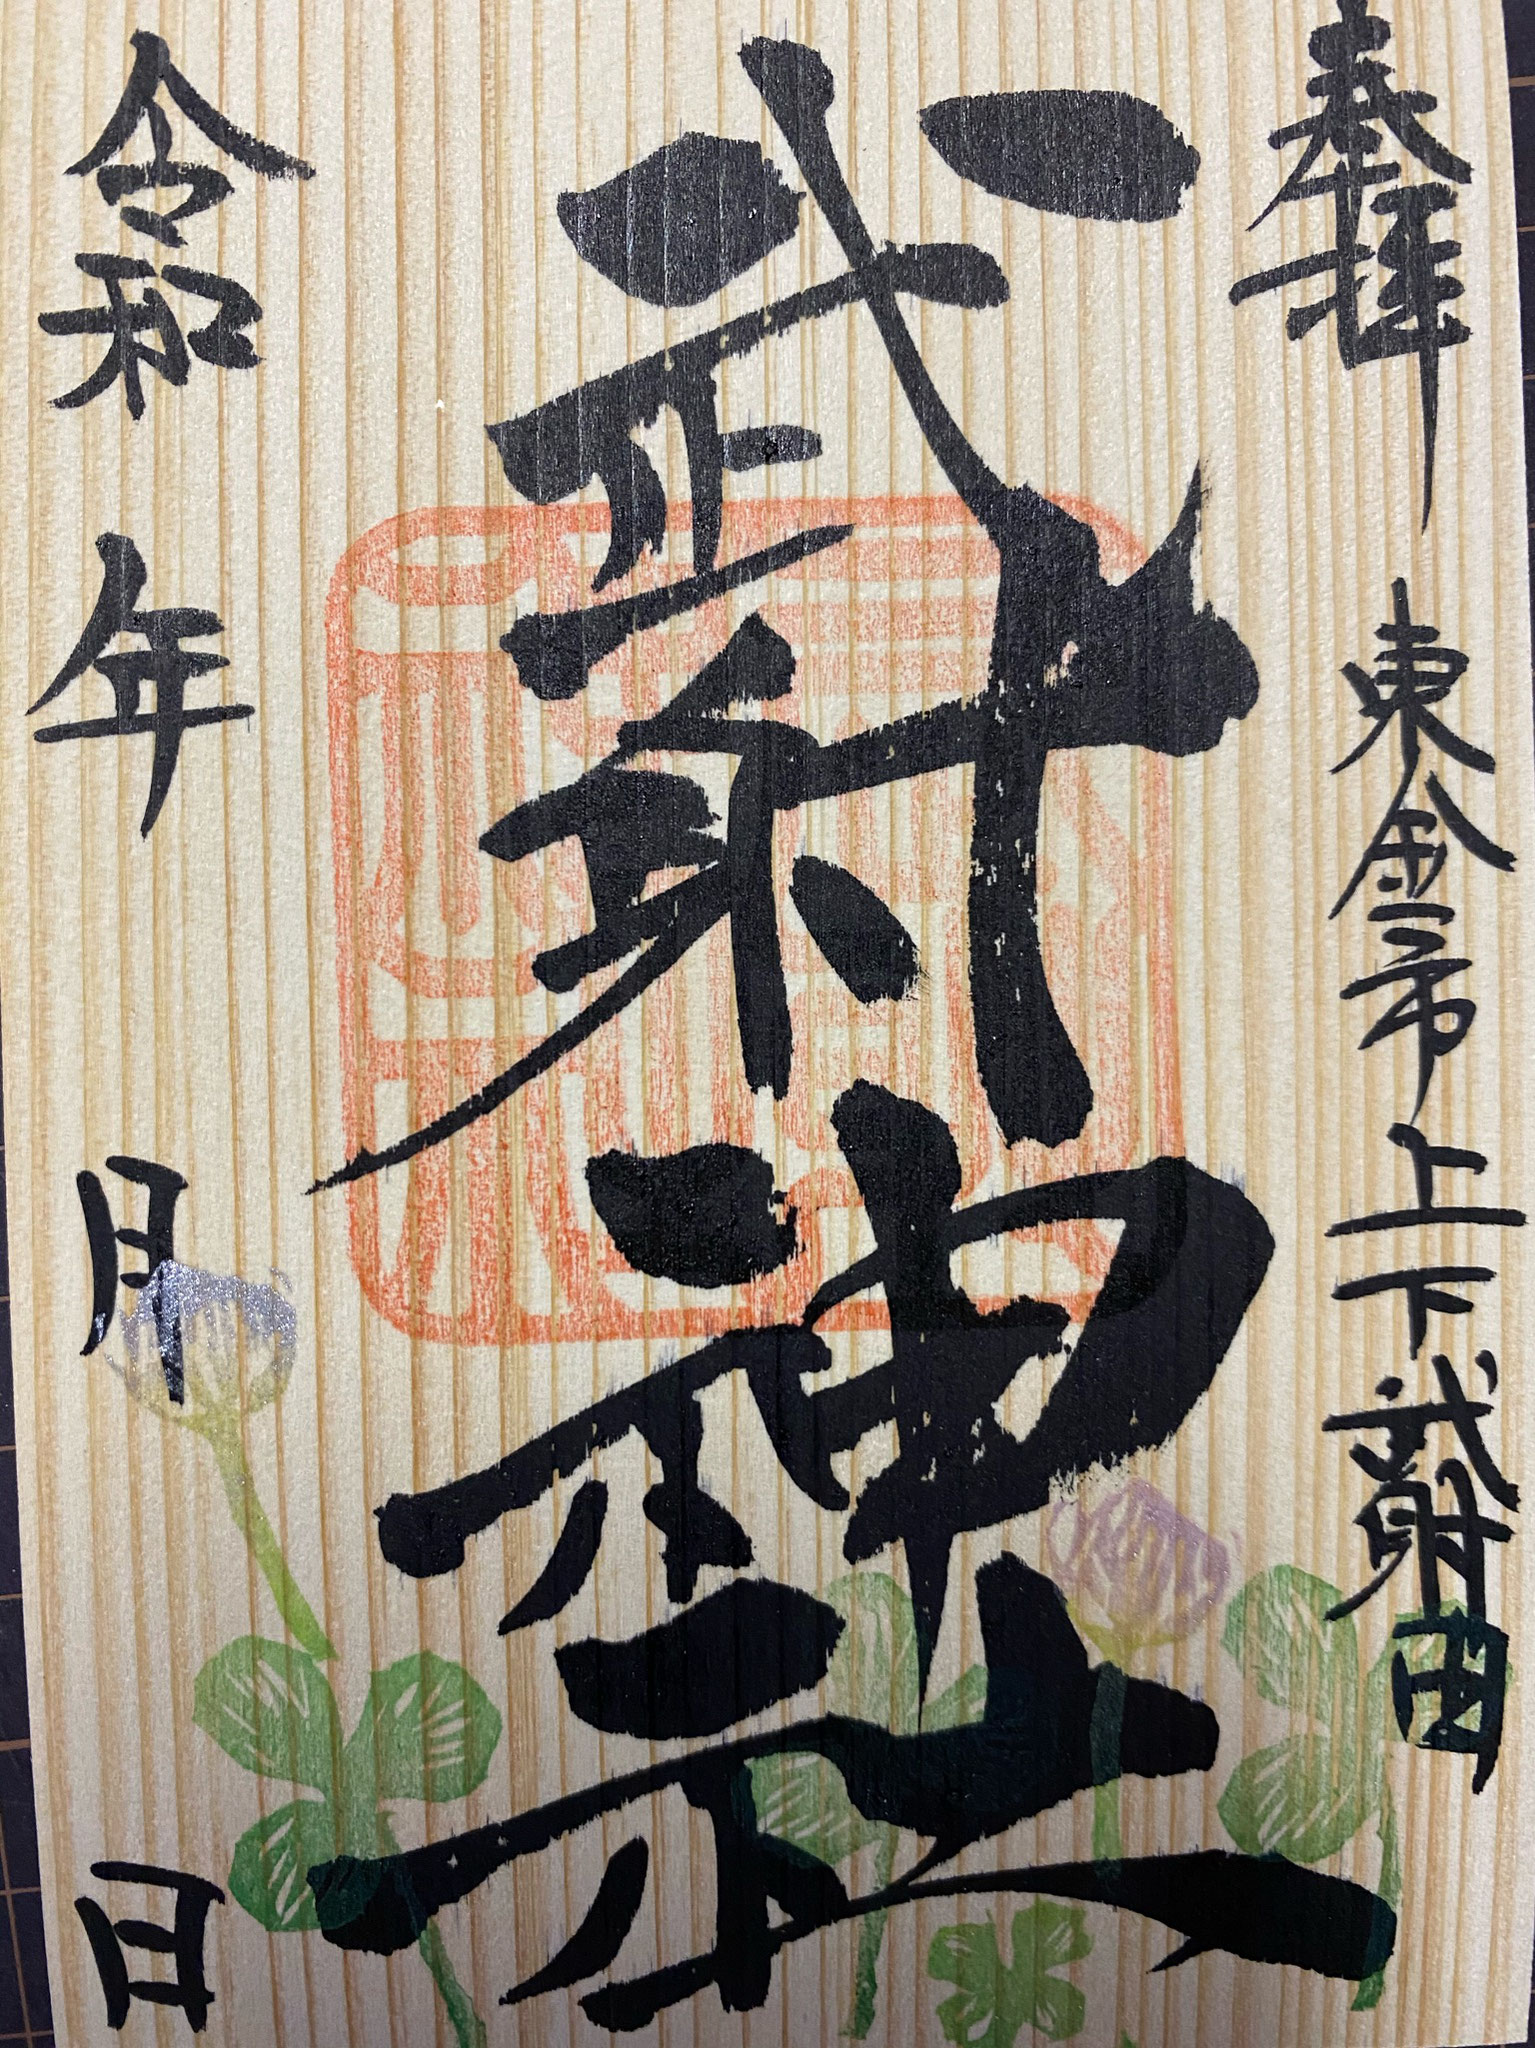 奉拝 東金市上下武射田
武射神社
令和 年 月 日